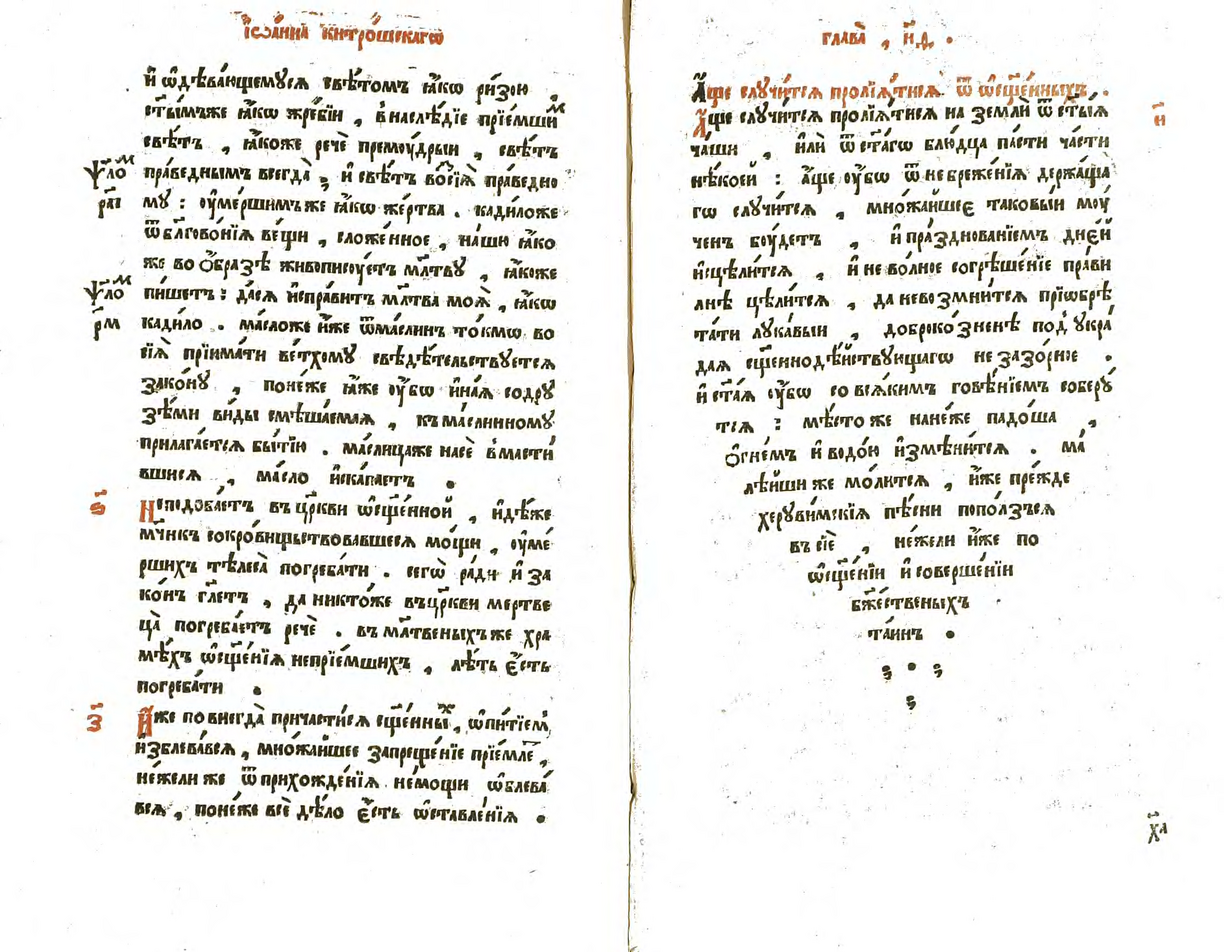 І҆ѡа́нна ки́тро́шскагѡ
и҆ ѡ҆дѣва́ющемуся свѣ́томъ ꙗ҆́кѡ ри́зою ,
ст҃ы́мъже ꙗ҆́кѡ жре́бїи , в наслѣ́дїе прїе́мшиⷨ
свѣ́тъ , ꙗ҆́коже речѐ премоу́дрыи , свѣ́тъ
ѱало́ⷨ
пра́веднымъ всегда̀ , и҆ свѣ́тъ восїѧ̀ пра́ведно
р҃аі
му : оу҆ме́ршимъже ꙗ҆́кѡ же́ртва . кади́ложе
ѿ бл҃гово́нїѧ ве́щи , сложе́нное , на́шю ꙗ҆́ко
же во о҆́бразѣ живописоу́етъ мл҃тву , ꙗ҆́коже
ѱало́ⷨ
пи́шетъ : да сѧ и҆спра́витъ мл҃тва моѧ̀ , ꙗ҆́кѡ
р҃м
кади́ло . ма́сложе и҆́же ѿ ма́слинъ то́кмѡ во
сїѧ̀ прїима́ти ве́тхому свѣдѣ́тельствуетсѧ
зако́ну , поне́же ꙗ҆́же оу҆́бѡ и҆́наѧ содру
зѣ́ми ви́ды смѣша́емаѧ , къ ма́слинному
прилага́етсѧ бытїю̀ . ма́слицаже насѐ в масти́
вшисѧ , ма́сло и҆скапа́етъ .
ѕ҃
Неподоба́етъ въ цр҃кви ѡ҆сщ҃е́нной , и҆дѣ́же
мч҃нкъ сокро́вищьствовавшеесѧ мо́щи , оу҆ме́
ршихъ тѣлеса̀ погреба́ти . сегѡ̀ ра́ди и҆ за
ко́нъ гл҃етъ , да никто́же въ цр҃кви мертве
ца̀ погреба́етъ речѐ . въ мл҃твеныхъже хра́
мѣхъ ѡ҆сщ҃е́нїѧ непрїе́мшихъ , лѣ́ть є҆́сть
погреба́ти .
з҃
И҆́же по внегда̀ причасти́сѧ сщ҃е́нныⷯ , ѡ҆пи́тїеⷨ
и҆зблева́всѧ , мно́жаишее запреще́нїе прїе́млеⷮ ,
не́жели же ѿ прихожде́нїѧ не́мощи ѡ҆блева́
всѧ , поне́же всѐ дѣ́ло є҆́сть ѡ҆ставле́нїѧ .
глава̀ , н҃д .
А҆́ще случи́тсѧ пролїѧ́тисѧ ѿ ѡ҆сщ҃е́нныхъ .
и҃
А҆́ще случи́тсѧ пролїѧ́тисѧ на землѝ ѿ ст҃ы́ѧ
ча́ши , и҆лѝ ѿ ст҃а́гѡ блю́дца па́сти ча́сти
нѣ́коей : а҆́ще оу҆́бѡ ѿ небреже́нїѧ держа́ща
гѡ случи́тсѧ , мно́жайшеє таковы́й моу́
ченъ боу́детъ , и҆ пра́зднованїемъ днє́й
и҆сцѣли́тсѧ , и҆ не во́лное согрѣше́нїе прави
лнѣ цѣли́тсѧ , да не возмни́тсѧ прїѡбрѣ
та́ти лука́выи , доброко́зненѣ под̾ укра́
даѧ сщ҃еннодѣ́йствующагѡ не зазо́рное .
и҆ ст҃а́ѧ оу҆́бѡ со всѧ́кимъ говѣ́нїемъ соберу́
тсѧ : мѣ́сто же на не́же падо́ша ,
о҆гне́мъ и҆ водо́ю и҆змѣни́тсѧ . ма́
лѣйши же мо́литсѧ , и҆́же пре́жде
херуви́мскїѧ пѣ́сни поползъсѧ
въ сїѐ , не́жели и҆́же по
ѡ҆сщ҃е́нїи и҆ соверше́нїи
бж҃е́ственыхъ
та́инъ .
х҃л